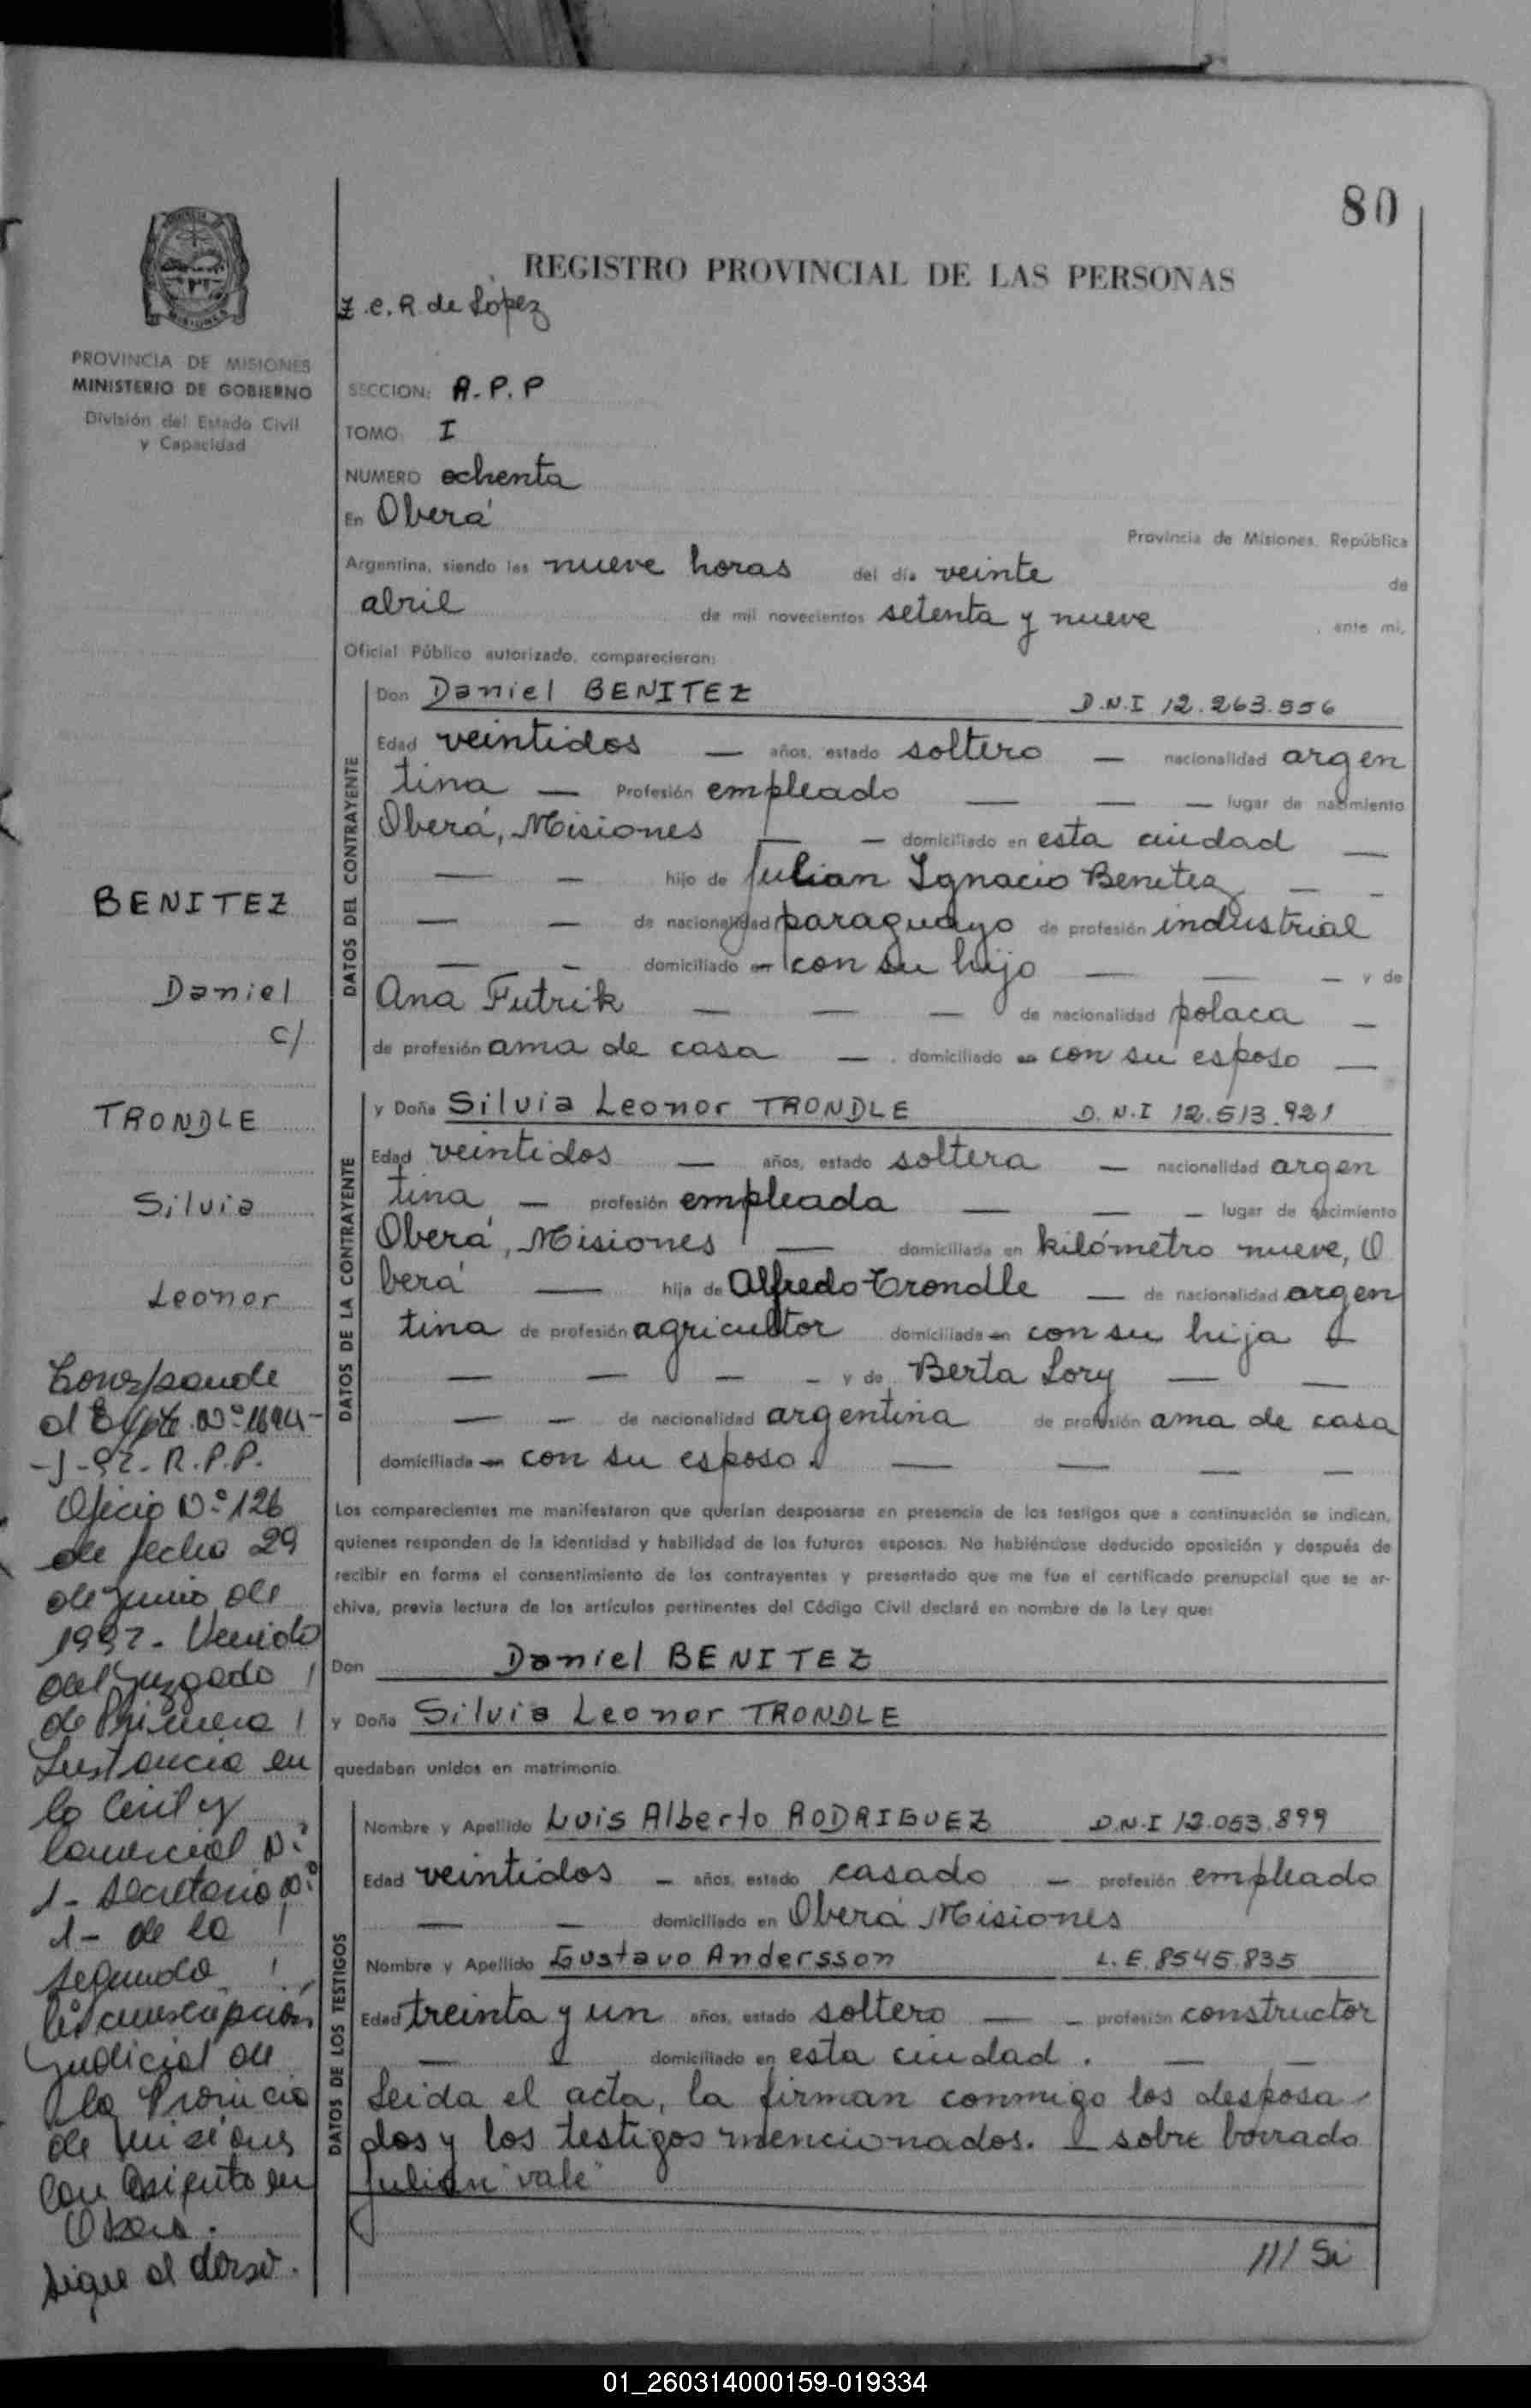 80
REGISTRO PROVINCIAL DE LAS PERSONAS
Z.C.R. de López
PROVINCIA DE MISIONES
MINISTERIO DE GOBIERNO
División del Estado Civil
y Capacidad
SECCION: A.P.P
TOMO: I
NUMERO ochenta
En Oberá
Provincia de Misiones, República
Argentina, siendo las nueve horas del día veinte de
abril de mil novecientos setenta y nueve, ante mi,
Oficial Público autorizado, comparecieron:
DATOS DEL CONTRAYENTE
Don Daniel BENITEZ D.N.I 12.263.556
Edad veintidos — años, estado soltero — nacionalidad argen
tina — Profesión empleado — — — lugar de nacimiento
Oberá, Misiones — — domiciliado en esta ciudad —
— — hijo de Julian Ignacio Benitez — -
— — de nacionalidad paraguayo de profesión industrial
— — domiciliado en con su hijo — — — y de
Ana Futrik — — — de nacionalidad polaca —
de profesión ama de casa — domiciliado en con su esposo —
DATOS DE LA CONTRAYENTE
y Doña Silvia Leonor TRONDLE D.N.I 12.513.921
Edad veintidos — años, estado soltera — nacionalidad argen
tina — profesión empleada — — — lugar de nacimiento
Oberá, Misiones — domiciliada en kilómetro nueve, O
berá — hija de Alfredo Trondle — de nacionalidad argen
tina de profesión agricultor domiciliada en con su hija —
— — — - y de Berta Lory — —
— — de nacionalidad argentina de profesión ama de casa
domiciliada en con su esposo. — — — —
Los comparecientes me manifestaron que querían desposarse en presencia de los testigos que a continuación se indican,
quienes responden de la identidad y habilidad de los futuros esposos. No habiéndose deducido oposición y después de
recibir en forma el consentimiento de los contrayentes y presentado que me fue el certificado prenupcial que se ar-
chiva, previa lectura de los artículos pertinentes del Código Civil declaré en nombre de la Ley que:
Don Daniel BENITEZ
y Doña Silvia Leonor TRONDLE
quedaban unidos en matrimonio.
DATOS DE LOS TESTIGOS
Nombre y Apellido Luis Alberto RODRIGUEZ D.N.I 12.053.899
Edad veintidos — años, estado casado — profesión empleado
— — domiciliado en Oberá Misiones
Nombre y Apellido Gustavo Andersson L.E. 8545.835
Edad treinta y un años, estado soltero — - profesión constructor
— — domiciliado en esta ciudad. — —
Leida el acta, la firman conmigo los desposa
dos y los testigos mencionados. — sobre borrado
Julian "vale"
/// Si
BENITEZ
Daniel
c/
TRONDLE
Silvia
Leonor
Corresponde
al Expte. Nº 1694-
-J-92- R.P.P.
Oficio Nº 126
de fecha 29
de junio de
1992- Venido
del Juzgado
de Primera
Instancia en
lo Civil y
Comercial Nº
1- Secretaria Nº
1- de la
segunda
Circunscripción
Judicial de
la Provincia
de Misiones
con asiento en
Oberá.
Sigue al dorso.
01_260314000159-019334